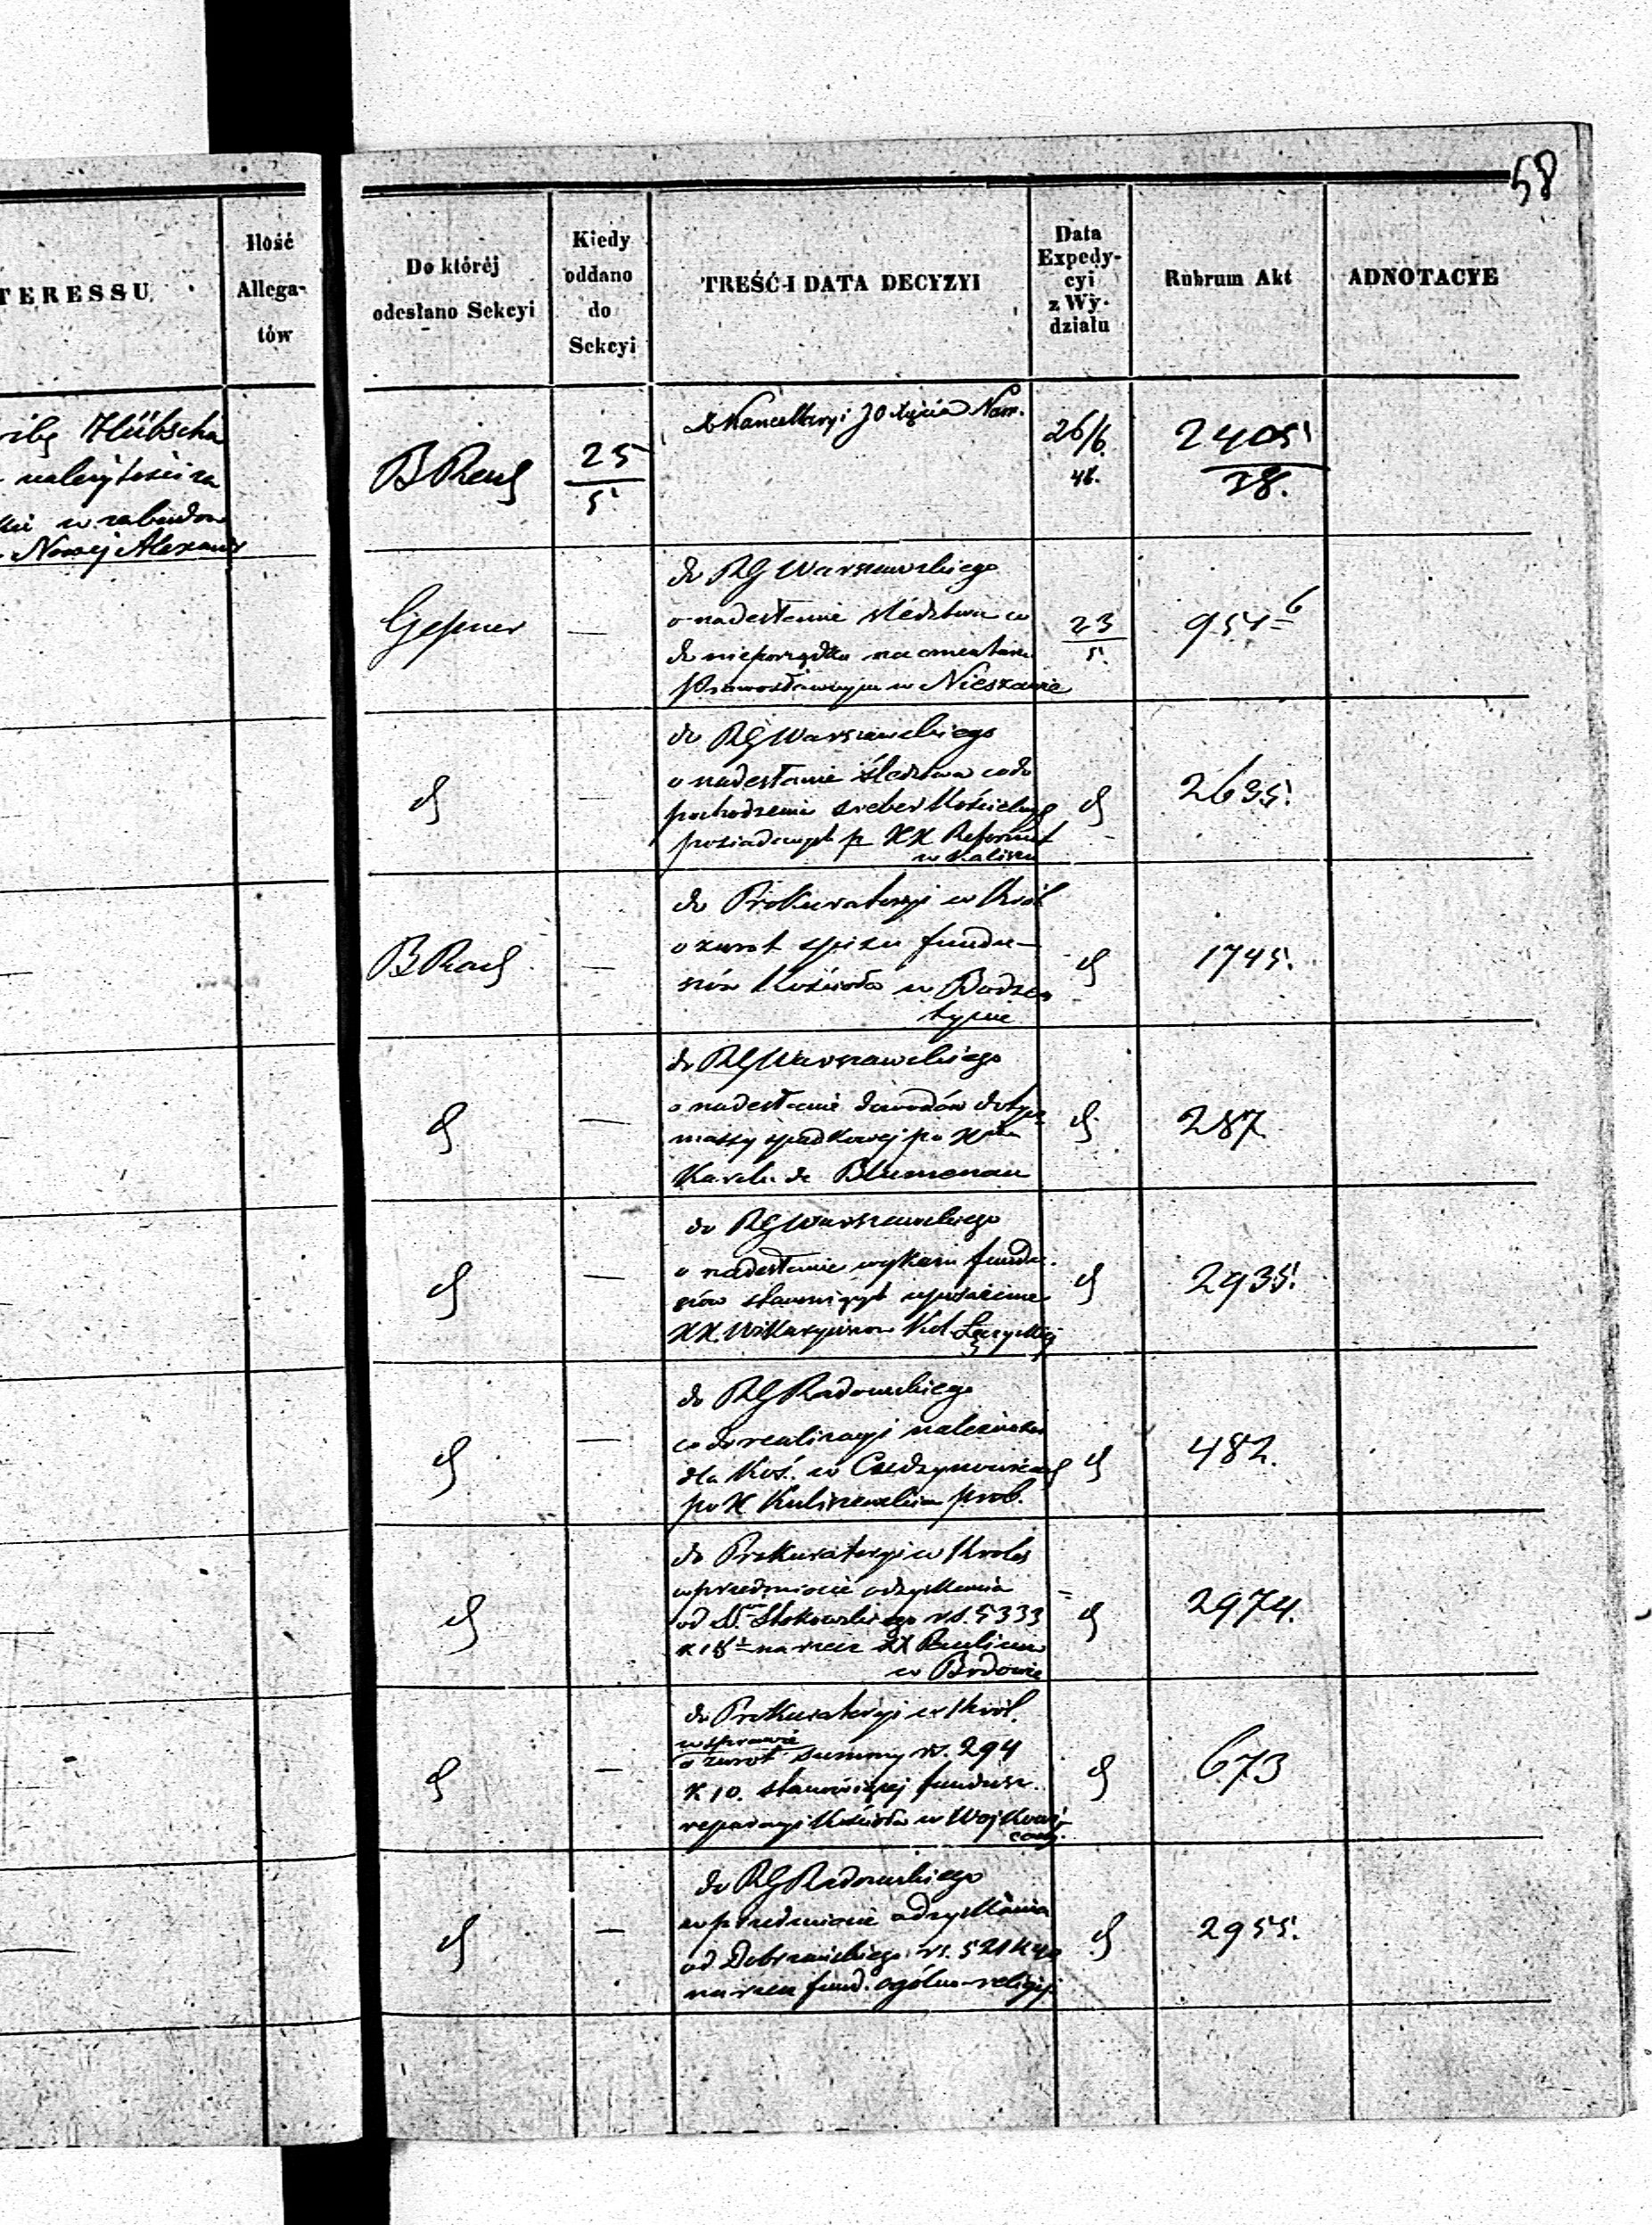 58
TERESSU
Ilość Allega-tów
Do któréj odesłano Sekcyi
Kiedy oddano do Sekcyi
TREŚĆ I DATA DECYZYI
Data Expedy-cyi z Wy-działu
Rubrum Akt
ADNOTACYE
Hübscha
należytości za
w zabudow
Nowej Alexandr
25
5
Kancellaryi JO Xięcia Nam.
26/6.
48.
2405
38.
do RG Warszawskiego
o nadesłanie śledztwa co
do nieporządku na cmentarzu
Prawosławnym w Nieszawie
Gepner
—
23
5.
954 6
do RG Warszawskiego
o nadesłanie śledztwa co do
pochodzenia sreber Kościelnych
posiadanych p XX Reformat
w Kaliszu
2635.
do Prokuratoryi w Król
o zwrot spisu fundu-
szów Kościoła w Bodzen
tynie
—
1745.
do RG Warszawskiego
o nadesłanie dowodów dotycz
massy spadkowej po X
Karolu de Blumenau
—
287
do RG Warszawskiego
o nadesłanie wykazu fundu.
szów stanowiących uposażenie
XX. Wikaryuszow Kol Łęczyckiej
—
2935.
do RG Radomskiego
co do realizacyi należności
dla Koś. w
po X Kuliszewskim prob.
—
482.
do Prokuratoryi w Kroles
w przedmiocie odzyskania
od Stokowskiego rs. 5333
k 18 na rzecz XX Paulinow
w Brdowie
2974.
do Prokuratoryi w Król.
w sprawie
o zwrot summy rs. 294
k 10. stanowiącej fundusz
reparacyi Kościoła w Wojkowi-
cach.
—
673
do RG Radomskiego
w przedmiocie odzyskania
od Dobrzańskiego rs. 521 k 40
na rzecz fund. ogólno-religij.
—
2955.